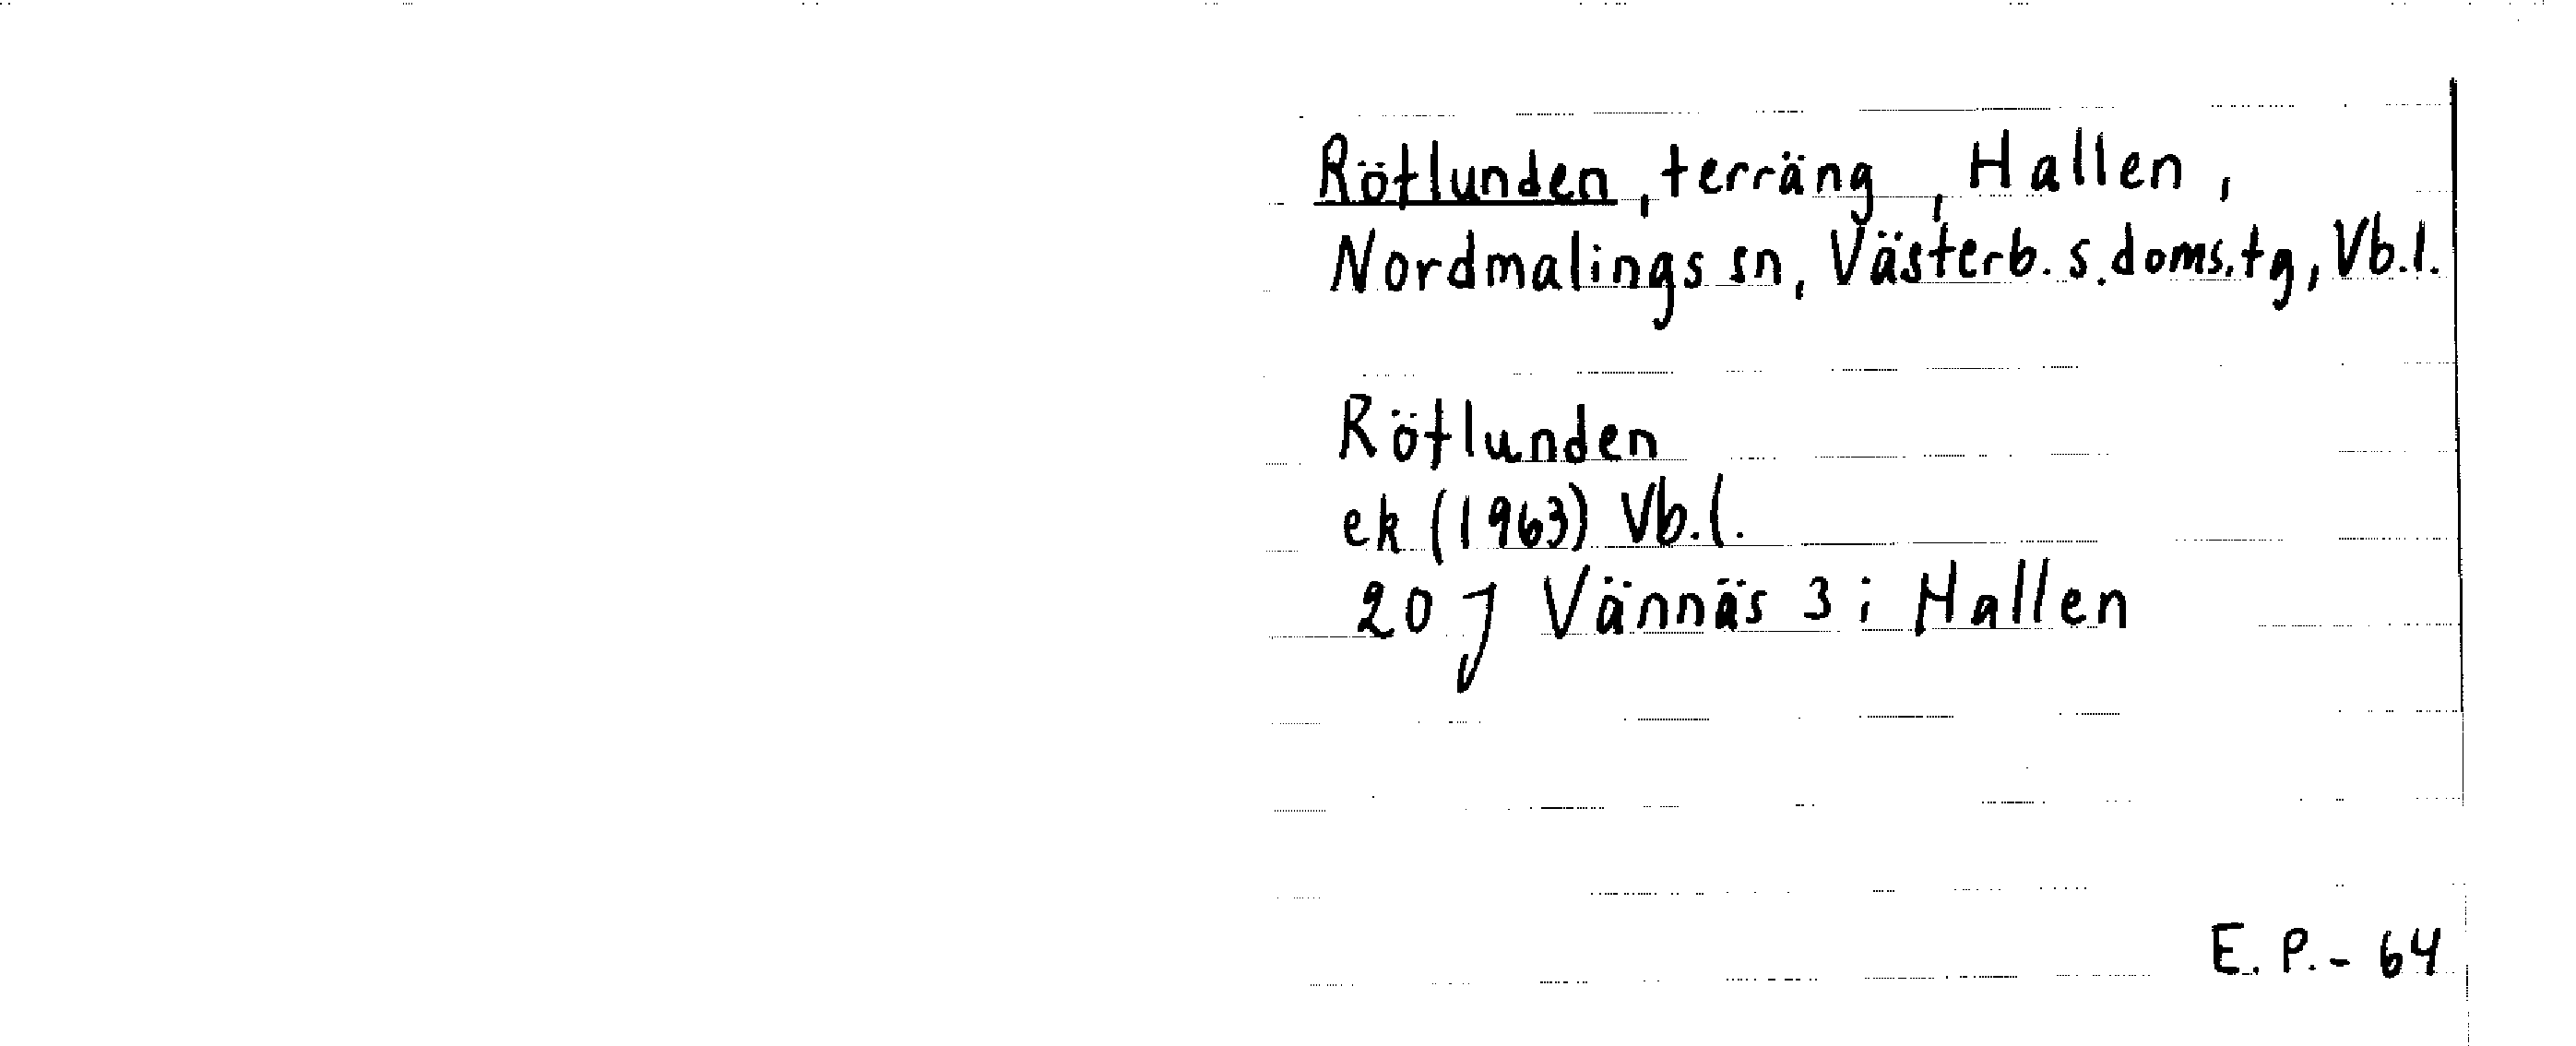 Rötlunden, terräng, Hallen,
Nordmalings sn, Västerb. s. doms. tg, Vb. l.
Rötlunden
ek (1963) Vb. l.
20 J Vännäs 3 i Hallen
E. P. - 64